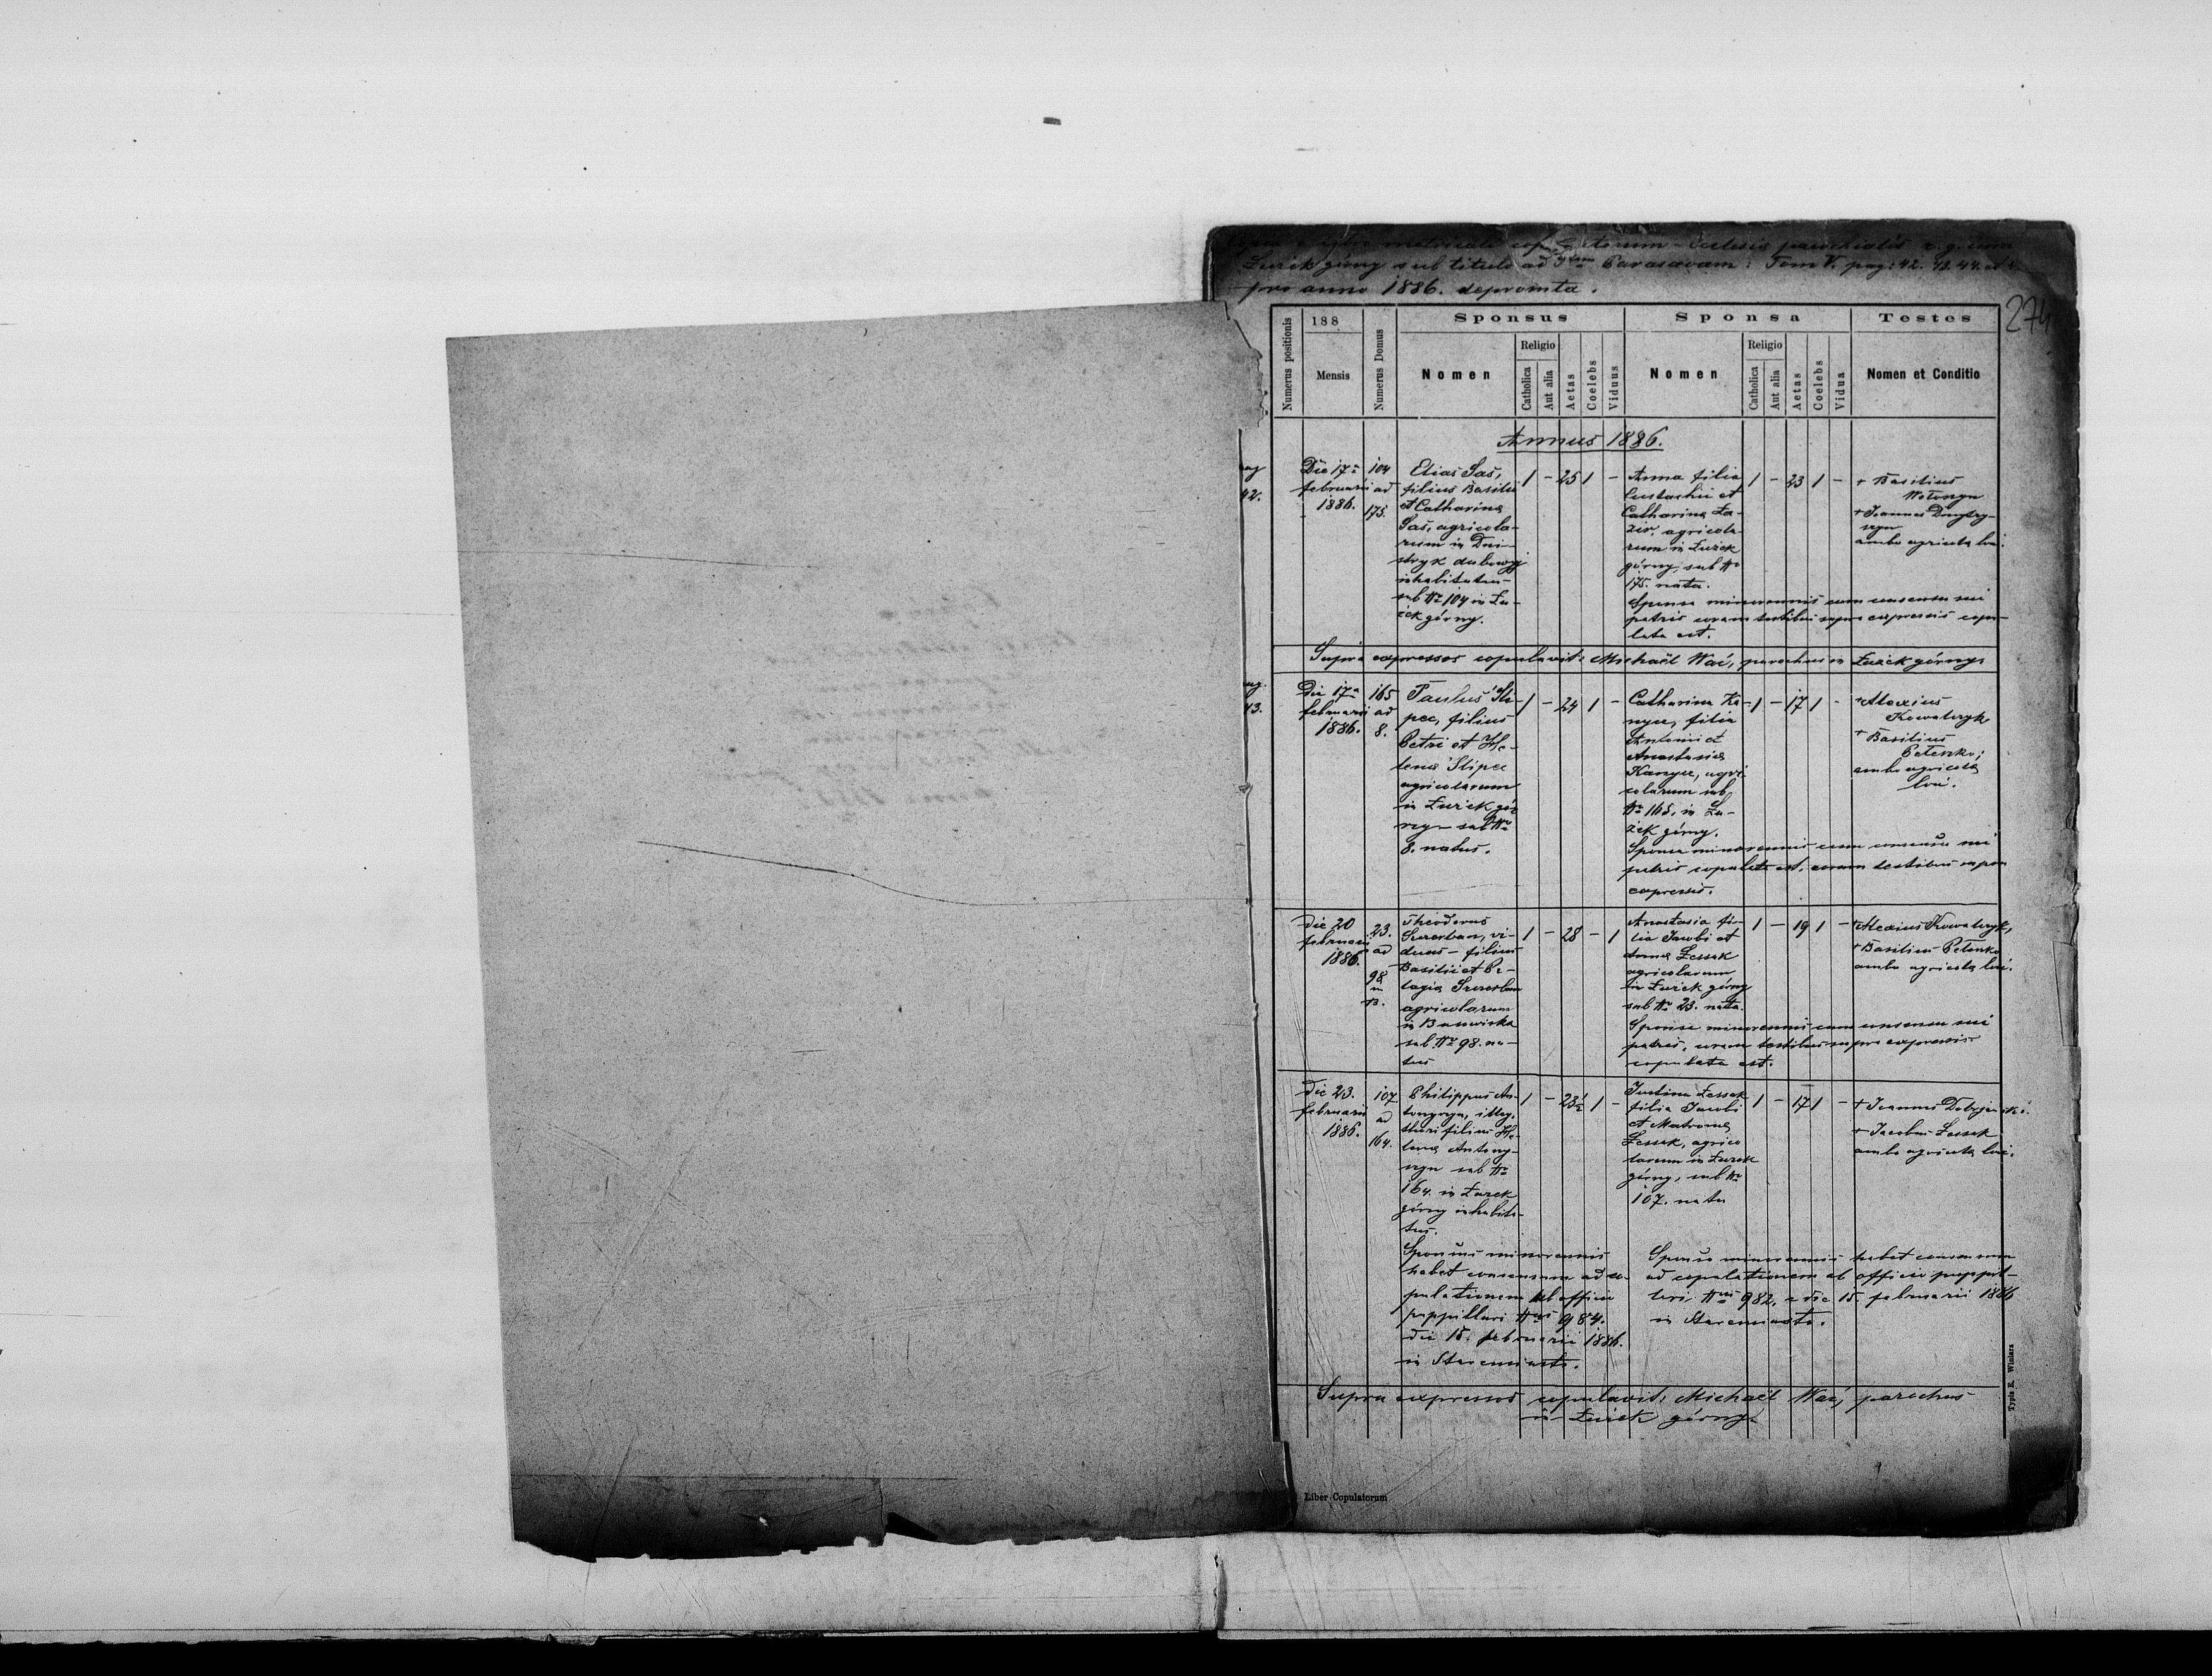 Copia e libro metricali copulatorum Ecclesiæ parochialis r. g. cum
Łużek górny sub titulo ad Stam Parascevam: Tom V. pag: 42. 43. 44. et
pro anno 1886. depromta.
274
Numerus positionis
188
Mensis
Numerus Domus
Sponsus
Nomen
Religio
Catholica
Aut alia
Aetas
Coelebs
Viduus
Sponsa
Nomen
Religio
Catholica
Aut alia
Aetas
Coelebs
Vidua
Testes
Nomen et Conditio
Annus 1886.
pag
42.
Die 17a
februarii
1886.
104
ad
175.
Elias Saś,
filius Basilii
et Catharinæ
Saś, agricola-
rum in Dni-
stryk dubowyj
inhabitatus
sub Nro 104 in Łu-
żek górny.
1 - 25 1 -
Anna filia
Eustachii et
Catharinæ Ła-
ziw, agricola-
rum in Łużek
górny, sub Nro
175. nata.
Sponsa minorennis cum consensu sui
patris coram testibus supra expressis copu-
lata est.
1 - 23 1 -
+ Basilius
+ Joannes Dmytry-
szyn
ambo agricolæ loci.
Supra expressos copulavit: Michaël Wać, parochus in Łużek górny.
pag.
43.
Die 17a
februarii
1886.
165
ad
8.
Paulus Sli-
pec, filius
Petri et He-
lenæ Slipec
agricolarum
in Łużek gór-
ny sub Nro
8. natus.
1 - 24 1 -
Catharina Ka-
nyuc, filia
Antonii et
Anastasiæ
Kanyuc, agri-
colarum sub
Nro 165. in Łu-
żek górny.
Sponsa minorennis cum consensu sui
patris copulata est, coram testibus supra
expressis.
1 - 17 1 -
+ Alexius
Kowalczyk
+ Basilius
Petenko;
ambo agricolæ
loci.
Die 20
februarii
1886.
23.
ad
98
in
B.
Theodorus
Szerban, vi-
duus - filius
Basilii et Pe-
lagiæ Szerban
agricolarum
in Busowiska
sub Nro 98. na-
tus
1 - 28 - 1
Anastasia fi-
lia Jacobi et
Annæ Łessak
agricolarum
in Łużek górny
sub Nro 23. nata.
Sponsa minorennis cum consensu sui
patris, coram testibus supra expressis
copulata est.
1 - 19 1 -
+ Alexius Kowalczyk,
+ Basilius Petenko
ambo agricolæ loci.
Die 23.
februarii
1886.
107
ad
164.
Philippus An-
tonyszyn, illegi-
thimi filius He-
lenæ Antony-
szyn sub Nro
164. in Łużek
górny inhabita-
tus.
Sponsus minorennis
habet consensum ad co-
pulationem ab officio
puppillari Nris 984.
die 15. februarii 1886.
in Staremiasto.
1 - 23½ 1 -
Justina Łessak
filia Jacobi
et Matronæ
Łessak, agrico
larum in Łużek
górny, sub Nro
107. nata
Sponsa minorennis habet consensum
ad copulationem ab officio puppil-
lari Nris 982, a die 15. februarii 1886
in Staremiasto.
1 - 17 1 -
+ Jacobus Łessak
ambo agricolæ loci.
Supra expressos copulavit: Michaël Wać, parochus
in Łużek górny.
Typis E. Winiarz
Liber Copulatorum